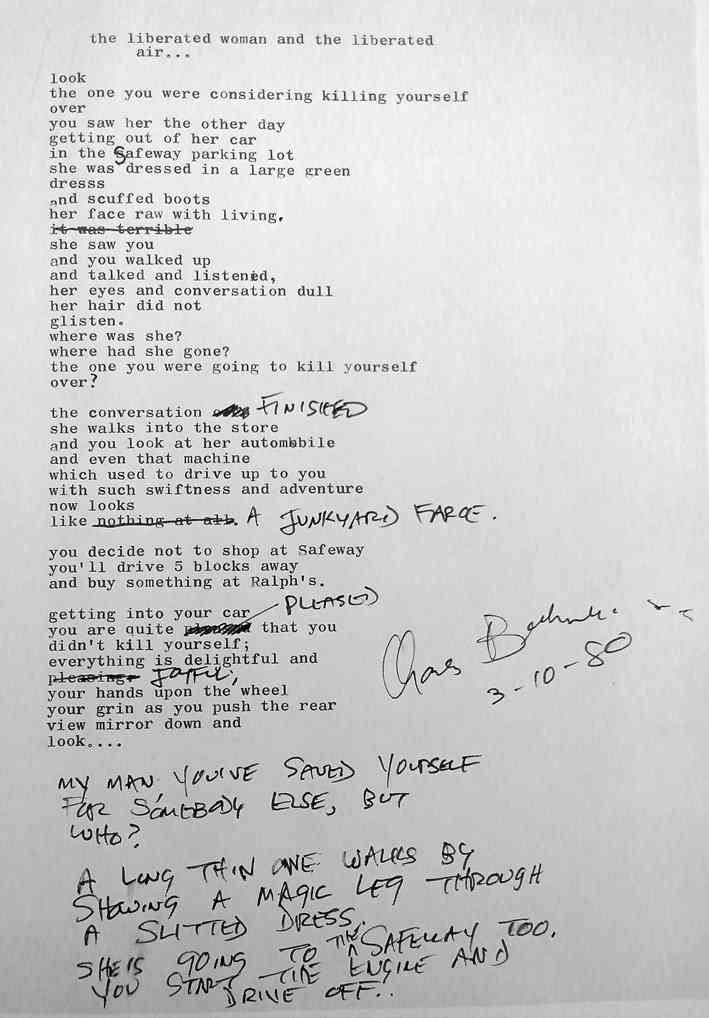 the liberated woman and the liberated
air...
look
the one you were considering killing yourself
over
you saw her the other day
getting out of her car
in the Safeway parking lot
she was dressed in a large green
dresss
and scuffed boots
her face raw with living.
it was terrible
she saw you
and you walked up
and talked and listened,
her eyes and conversation dull
her hair did not
glisten.
where was she?
where had she gone?
the one you were going to kill yourself
over?
the conversation FINISHED
she walks into the store
and you look at her automobile
and even that machine
which used to drive up to you
with such swiftness and adventure
now looks
like nothing at all. A JUNKYARD FARCE.
you decide not to shop at Safeway
you'll drive 5 blocks away
and buy something at Ralph's.
getting into your car
you are quite PLEASED that you
didn't kill yourself;
everything is delightful and
pleasing. JOYFUL,
your hands upon the wheel
your grin as you push the rear
view mirror down and
look....
3-10-80
MY MAN, YOU'VE SAVED YOURSELF
FOR SOMEBODY ELSE, BUT
WHO?
A LONG THIN ONE WALKS BY
SHOWING A MAGIC LEG THROUGH
A SLITTED DRESS.
SHE'S GOING TO THE SAFEWAY TOO.
YOU START THE ENGINE AND
DRIVE OFF..